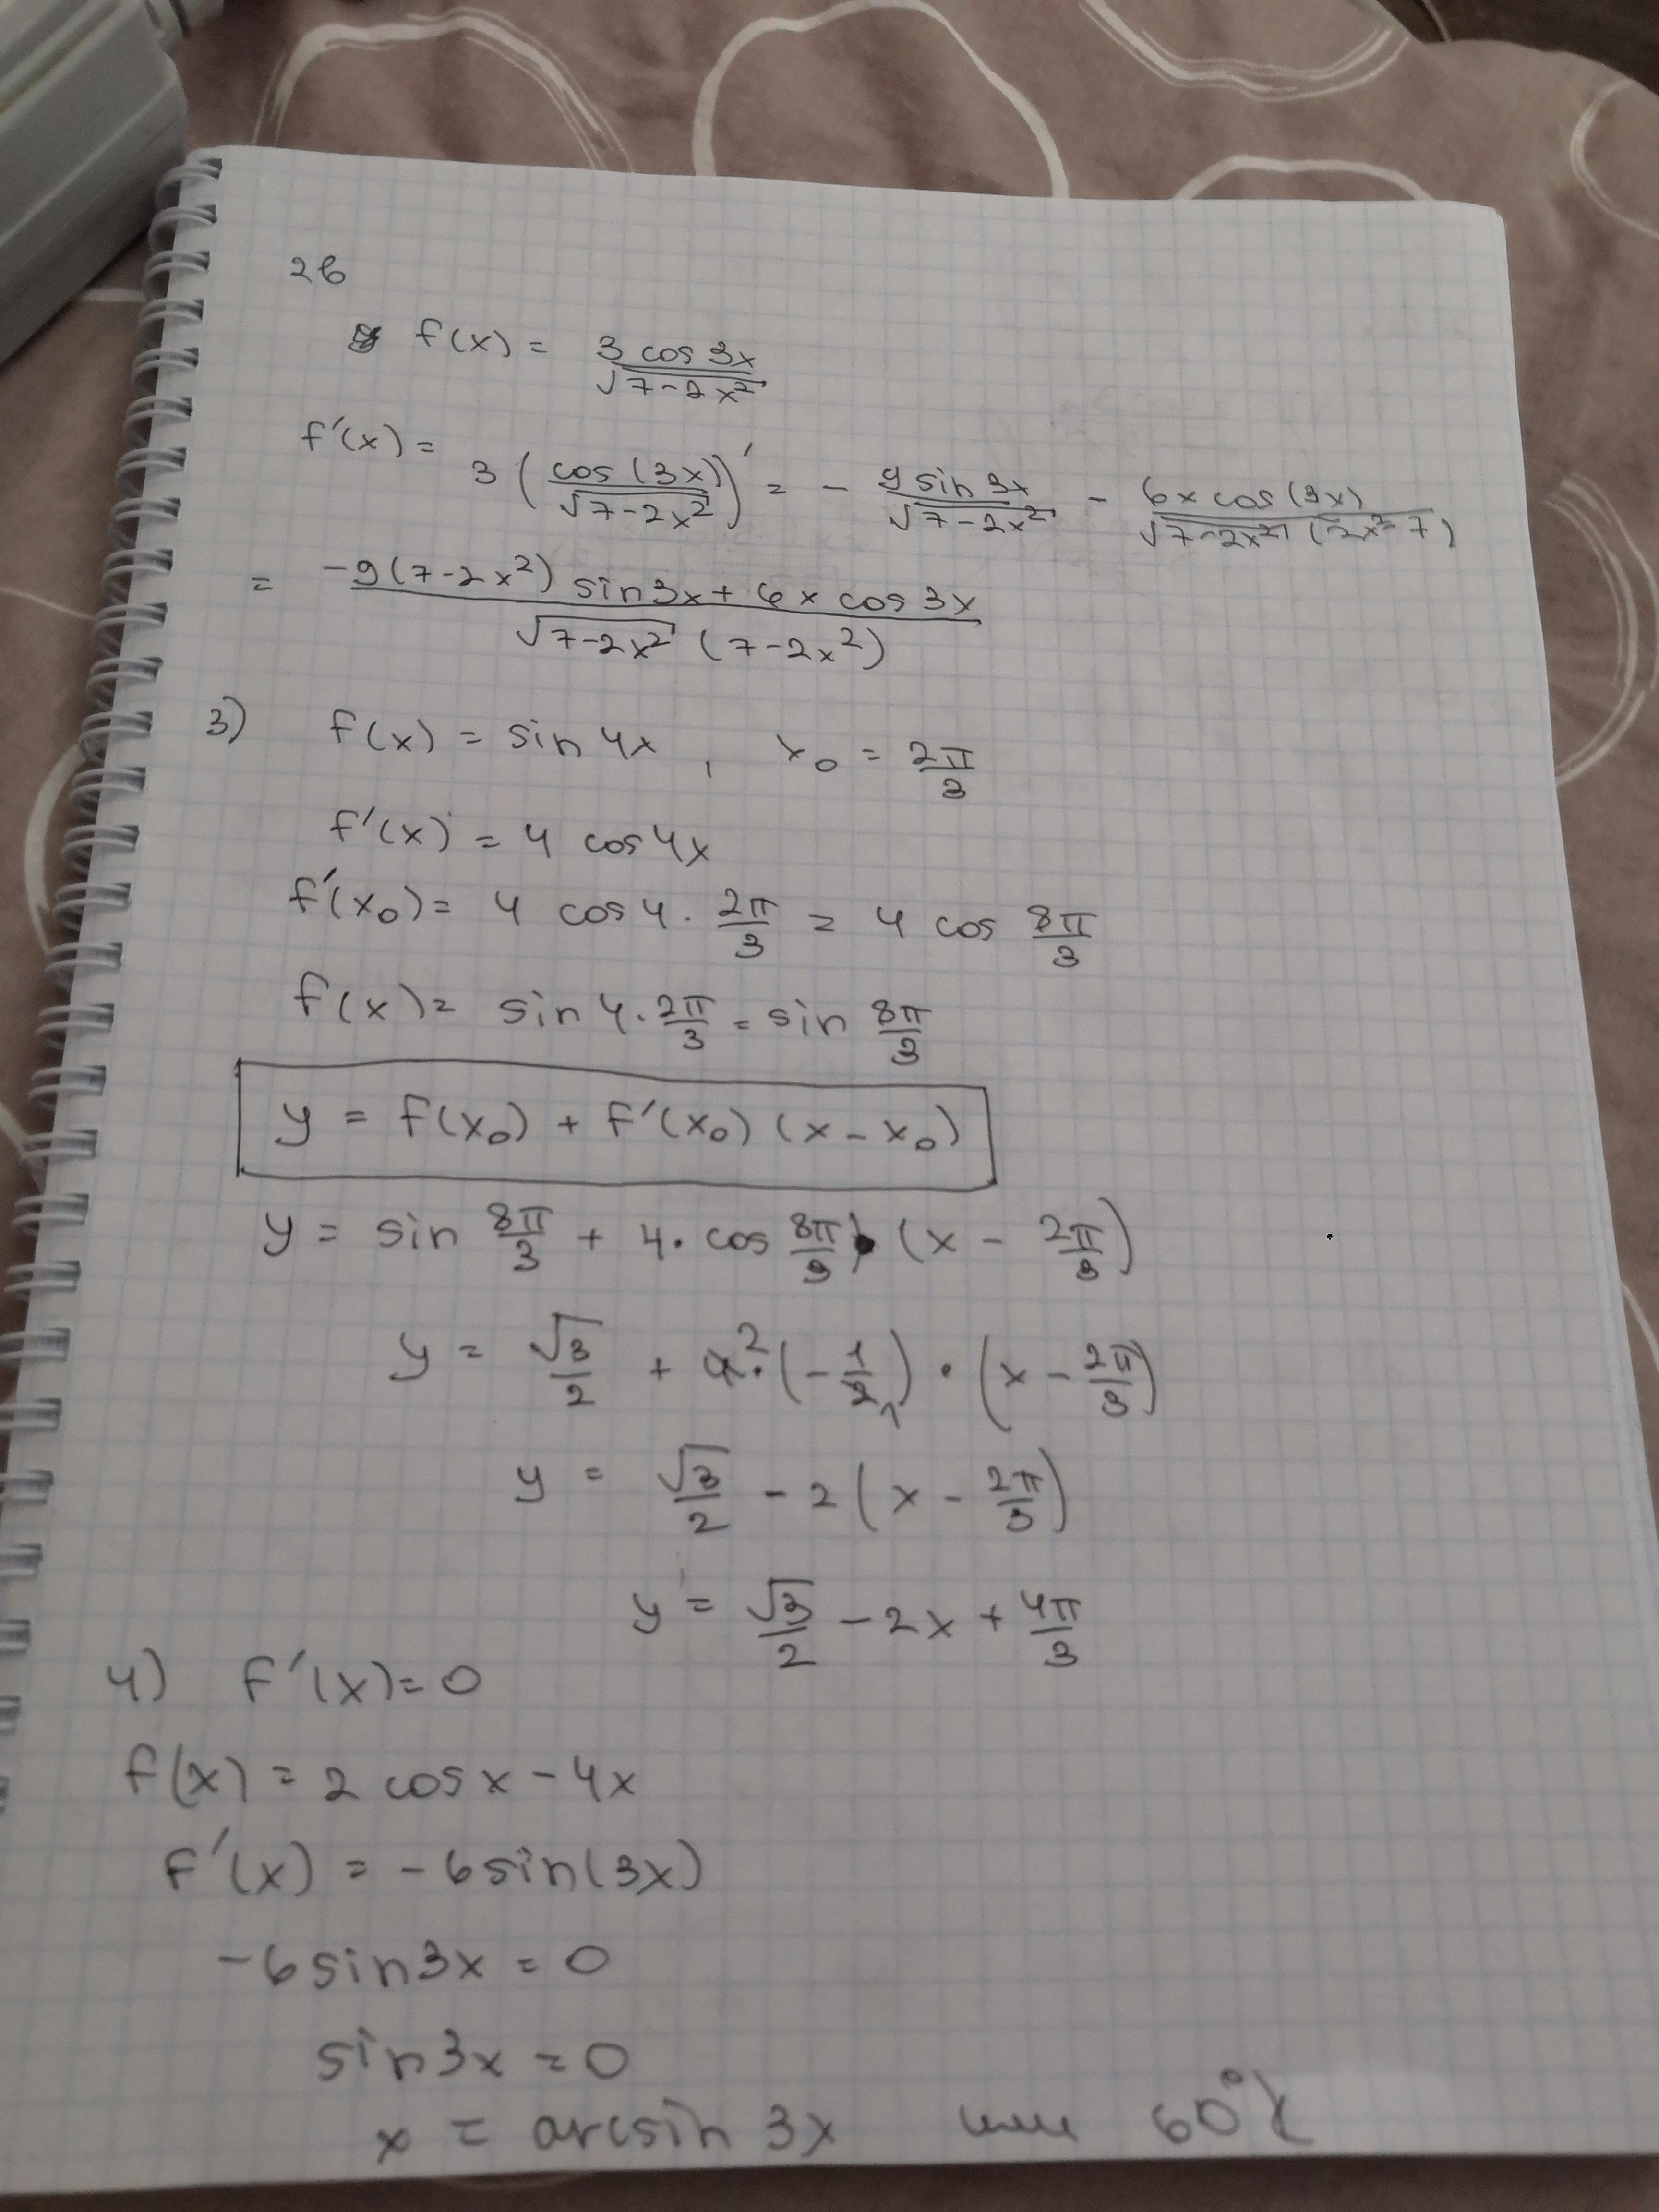 2в
f(x) = 3 cos 3x / √(7-2x²)
f'(x) = 3 (cos(3x) / √(7-2x²))' = - 9 sin 3x / √(7-2x²) - 6x cos(3x) / √(7-2x²) (2x²-7)
= -9(7-2x²) sin3x + 6x cos 3x / √(7-2x²) (7-2x²)
3) f(x) = sin 4x , x₀ = 2π/3
f'(x) = 4 cos 4x
f'(x₀) = 4 cos 4 · 2π/3 = 4 cos 8π/3
f(x) = sin 4 · 2π/3 = sin 8π/3
y = f(x₀) + f'(x₀) (x - x₀)
y = sin 8π/3 + 4 · cos 8π/3 · (x - 2π/3)
y = √3/2 + 4² · (-1/2₁) · (x - 2π/3)
y = √3/2 - 2(x - 2π/3)
y = √3/2 - 2x + 4π/3
4) f'(x) = 0
f(x) = 2 cos x - 4x
f'(x) = -6 sin(3x)
-6 sin3x = 0
sin3x = 0
x = arcsin 3x или 60°k